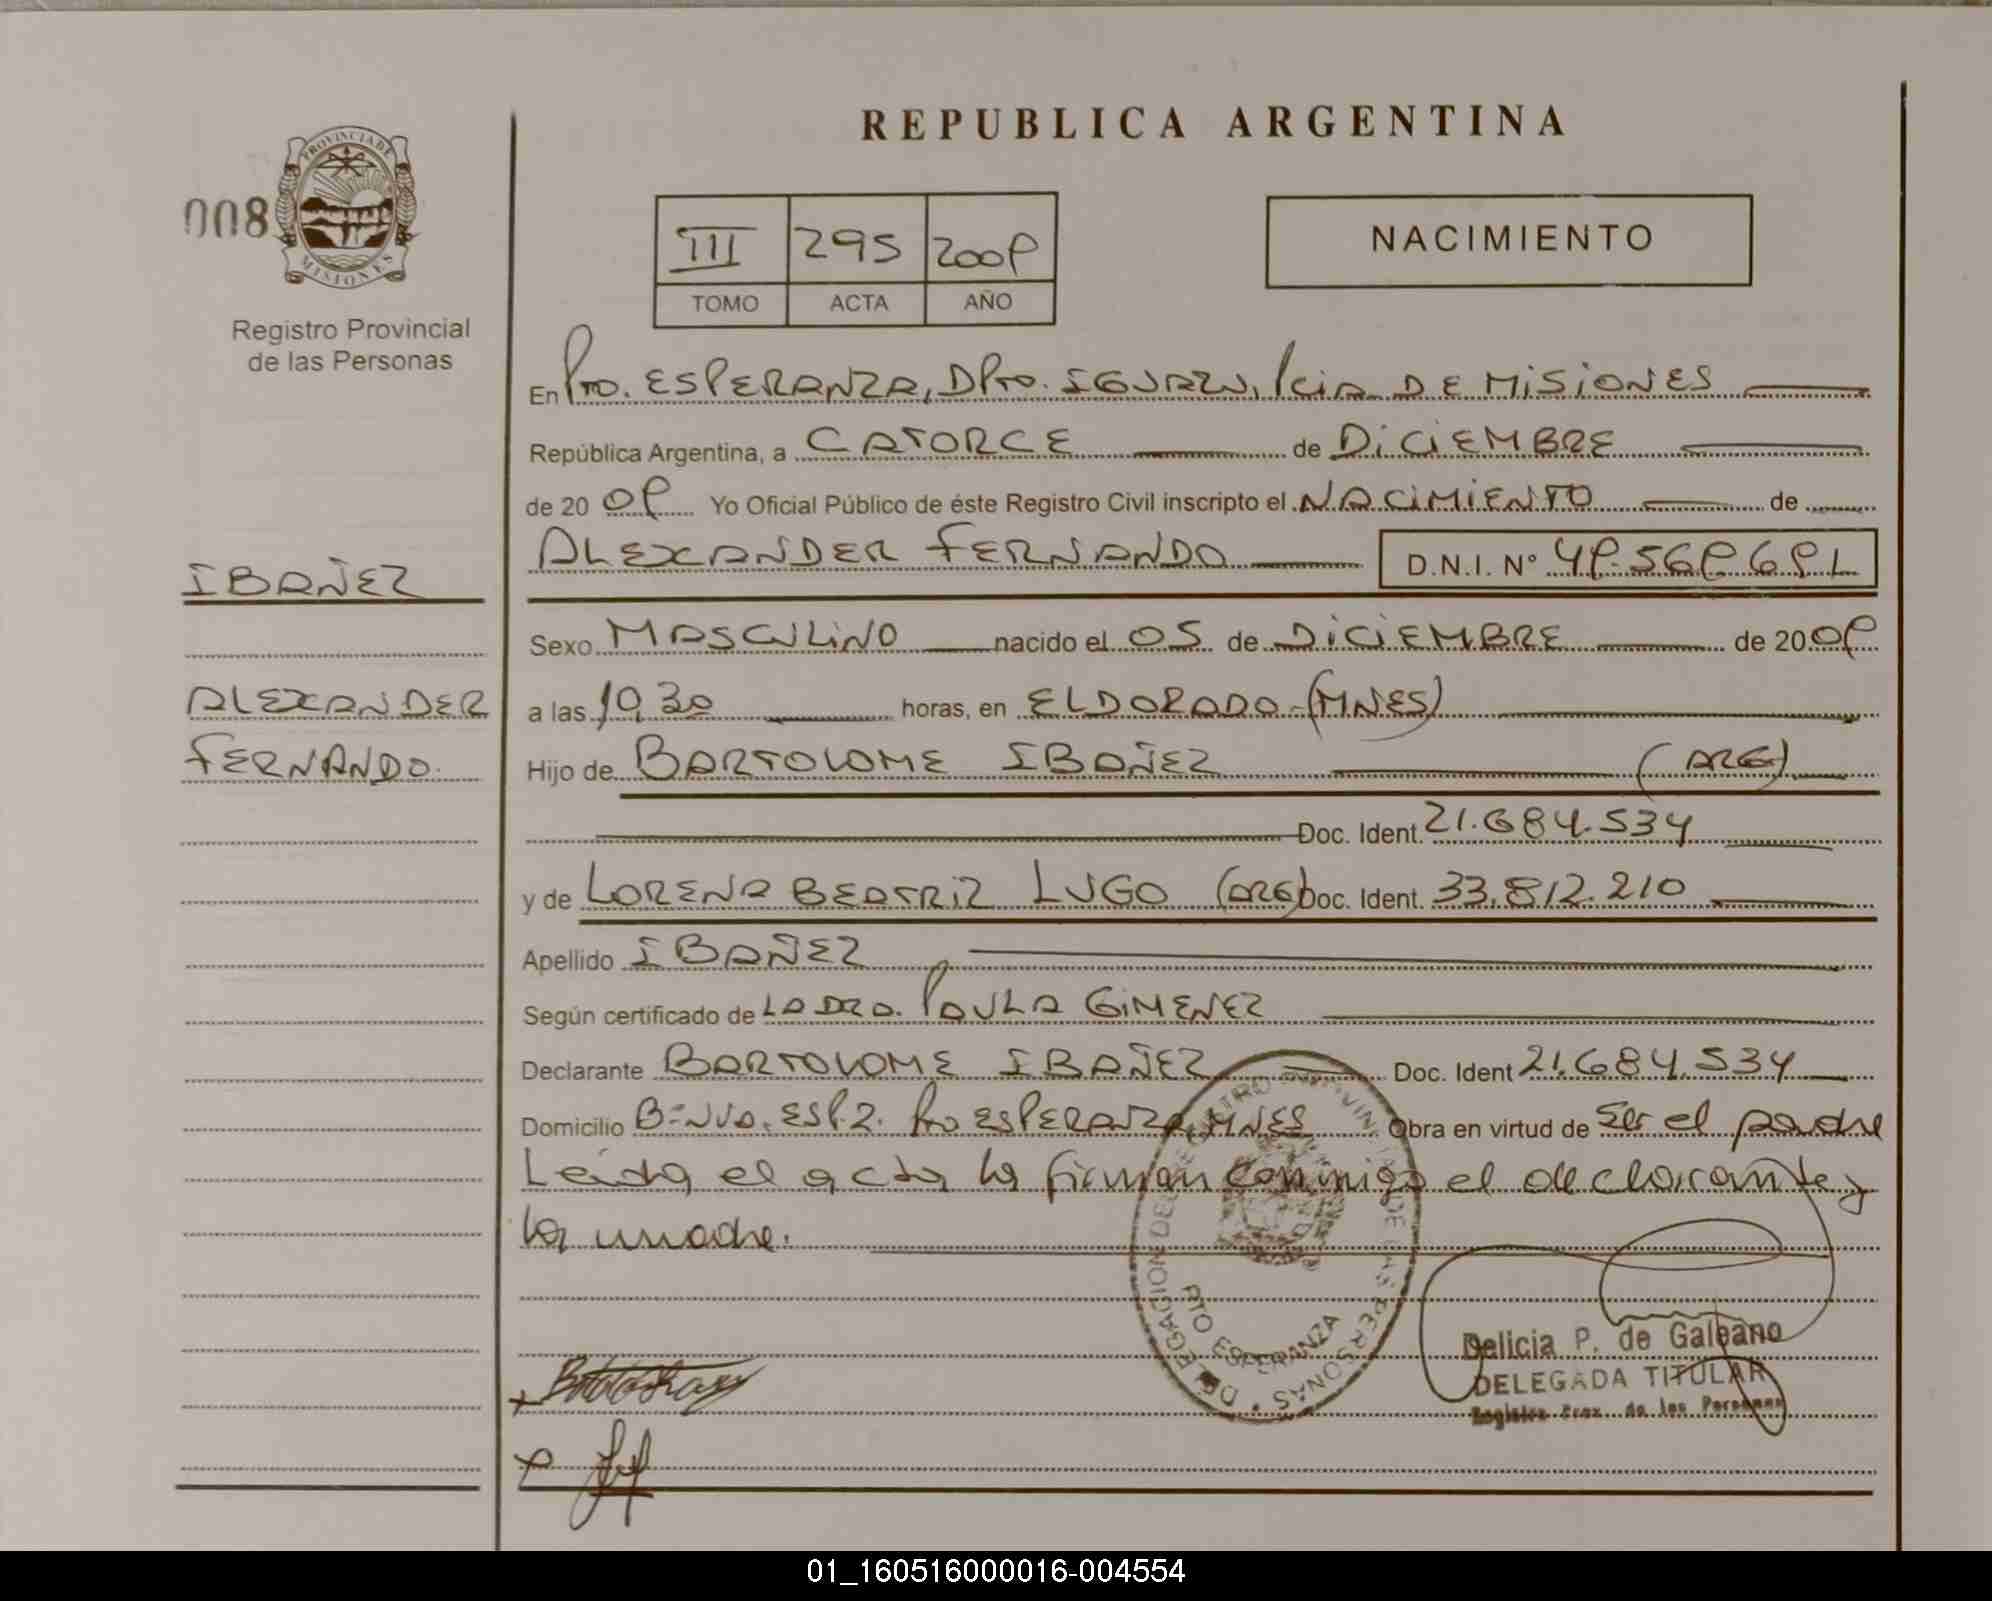 REPUBLICA ARGENTINA
008
PROVINCIA DE MISIONES
Registro Provincial
de las Personas
III 295 2009
TOMO ACTA AÑO
NACIMIENTO
En Pto. ESPERANZA, DPto. IGUAZU, Pcia DE MISIONES
República Argentina, a CATORCE de DICIEMBRE
de 2009 Yo Oficial Público de éste Registro Civil inscripto el NACIMIENTO de
IBAÑEZ
ALEXANDER FERNANDO D.N.I. Nº
Sexo MASCULINO nacido el 05 de DICIEMBRE de 2009
ALEXANDER
FERNANDO.
a las 19,30 horas, en ELDORADO-(MNES)
Hijo de BARTOLOME IBAÑEZ (ARG)
Doc. Ident. 21.684.534
y de LORENA BEATRIZ LUGO (ARG) Doc. Ident. 33.812.210
Apellido IBAÑEZ
Según certificado de LA DRA. PAULA GIMENEZ
Declarante BARTOLOME IBAÑEZ Doc. Ident 21.684.534
Domicilio Bº NVA. ESP. 2. Pto ESPERANZA, MNES Obra en virtud de Ser el padre
Leida el acta la firman conmigo el declarante y
la madre.
DELEGACION DEL REGISTRO PROVINCIAL DE LAS PERSONAS
PTO ESPERANZA
Delicia P. de Galeano
DELEGADA TITULAR
Registro Prov. de las Personas
01_160516000016-004554